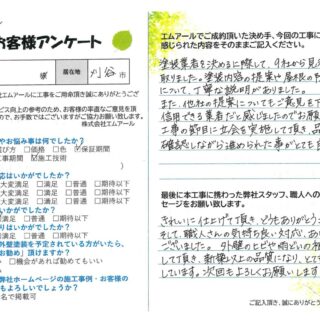 お客様アンケート
様 居在地 刈谷 市
エムアールに工事をご用命頂き誠にありがとうござ
ビス向上の参考のため、お客様の率直なご意見を頂
ので、お手数ではございますがご協力お願い致します。
株式会社エムアール
やお悩み事は何でしたか?
選び方 □価格 □色 ☑保証期間
工事期間 ☑施工技術
応はいかがでしたか?
大変満足 □満足 □普通 □期待以下
大変満足 □満足 □普通 □期待以下
りはいかがでしたか?
満足 □満足 □普通 □期待以下
外壁塗装を予定されている方がいたら、
お勧め」頂けますか?
□機会があれば勧めてもいい
弊社ホームページの施工事例・お客様の
もよろしいでしょうか?
名で掲載可
エムアールでご成約頂いた決め手、今回の工事に
感じられた内容をそのままご記入ください。
塗装業者を決めるに際して、9社から見
取りました。塗装内容の提案や屋根の
について、丁寧な説明がありました。
また、他社の提案についてもご意見を下
信用できる業者だと感じましたのでお願
工事の節目に立会を実施して頂き、品
確認しながら進められた事がとても
最後に本工事に携わった弊社スタッフ、職人への
セージをお願い致します。
きれいに仕上げて頂き、どうもありがとう
そして、職人さんの気持ち良い対応、あり
ございました。外壁のヒビや雨どいの
して頂き、新築以上の品質になり、とて
しています。次回もよろしくお願いします
ご記入頂き、誠にありがとう